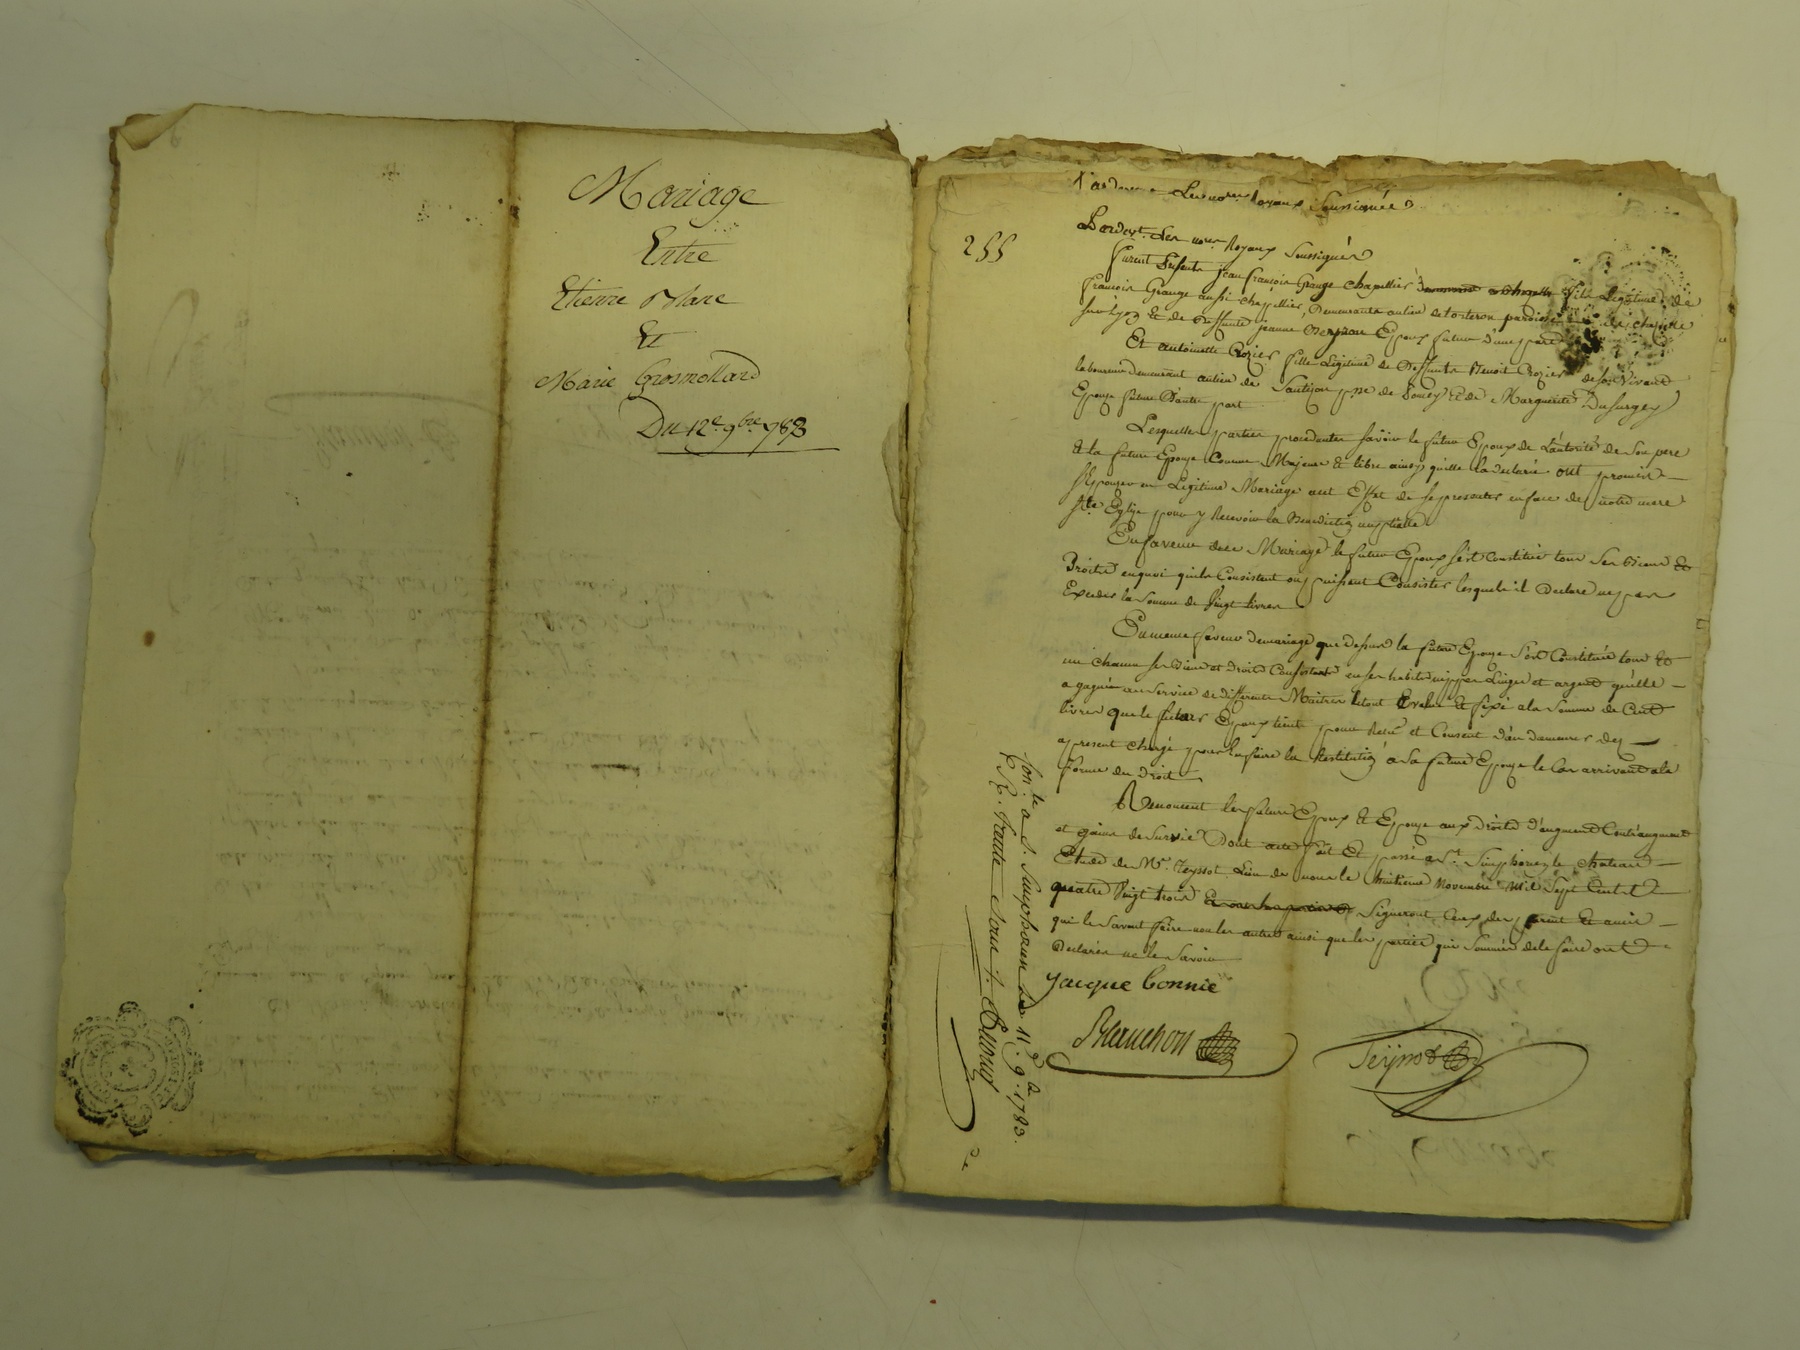 Mariage
Entre
Etienne Blanc
Et
Marie Grosmollard
Du 12e 9bre 1783
Soussignés
255
Pardevt. Les nores Royaux Soussignés
furent Présents jean françois Grange chapellier fils Légitime de
francois Grange aussi chapellier, Demeurants au lieu de paroisse de chapelle
sur et de Deffunte jeanne Epoux futur d'une part
Et antoinette Crozier fille Légitime de Deffunts Benoit Crozier de son Vivant
laboureur demeurant au lieu de psse de Et de Margueritte Dusurgey
Epouse future D'autre part
Lesquelles parties procedantes savoir le futur Epoux de L'autorité de Son pere
Et la future Epouse Comme Majeure & libre ainsy qu'elle la declaré ont promis
s'Epouser en Légitime Mariage aut Effet de se presenter en face de notre mere
ste Eglise pour y Recevoir la Benediction nuptialle
En faveur de ce Mariage le futur Epoux s'est Constitué tous ses Biens &
Droits en quoi qu'ils Consistent ou puissent Consister lesquels il Declare ne pas
Exceder la somme de Vingt livres
En meme faveur de mariage que dessus la future Epouse s'est Constituée tous &
un chacun ses Biens et Droits Consistants en ses habits nippes Linges et argent qu'elle
a gagnée au service de differents Maitres le tout Evalué & fixé a la somme de Cent
livres que le futur Epoux tient pour Recu et Consent d'en demeurer dez
apresent chargé pour En faire la Restitution a sa future Epouse le Cas arrivant a la
forme du Droit
Renoncent les futurs Epoux & Epouse aux Droits d'augment Contraugment
et gains de survie Dont acte fait Et passé a St. Simphorien le chateau
Etude de Mr. Teyssot L'un de nous le huitieme Novembre Mil Sept Cent
quatre Vingt trois Signeront Ceux des parents Et amis
qui le savent faire non les autres ainsi que les parties qui sommés de le faire ont
Declarés ne le savoir
jacque Connie
Blanchon
Teyssot
Conle. a S. Simphorien le 11. 9. 1783.
R. trente sous